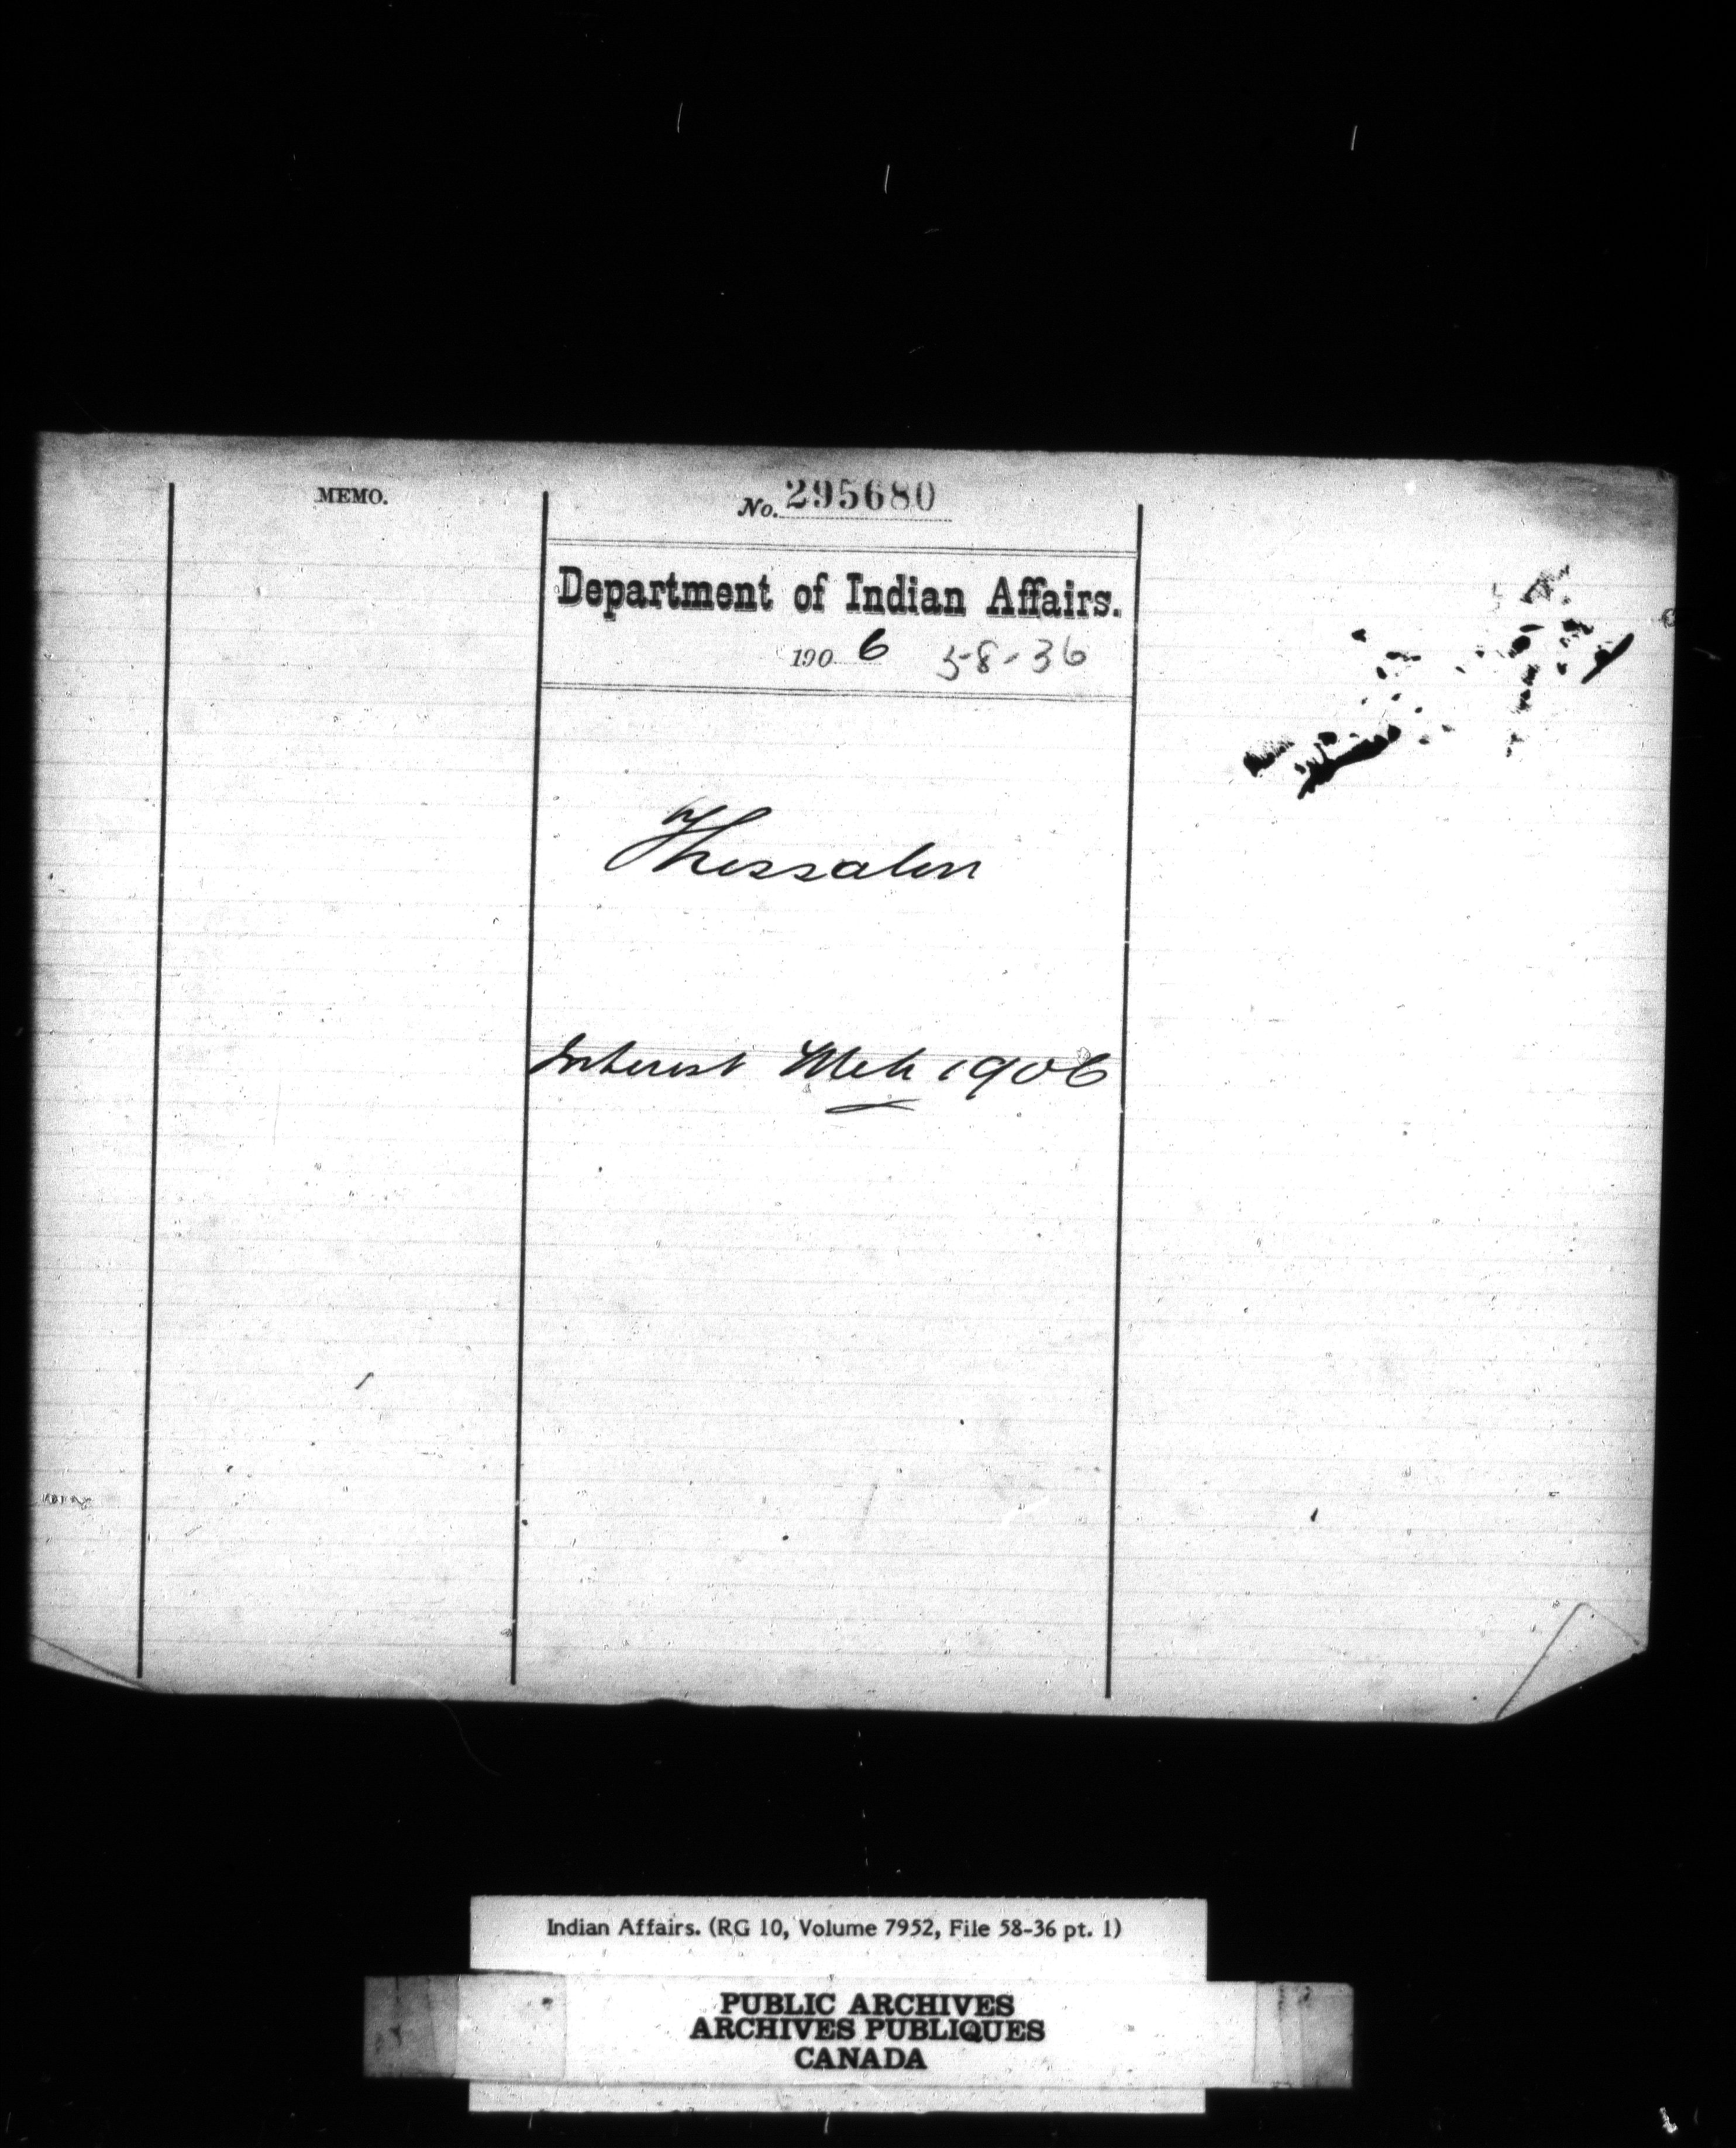 MEMO.
No. 295680
Department of Indian Affairs.
190 6 58-36
Thessalon
Interest Mch 1906
Indian Affairs. (RG 10, Volume 7952, File 58-36 pt. 1)
PUBLIC ARCHIVES
ARCHIVES PUBLIQUES
CANADA